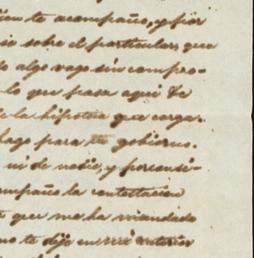 bien te acompaño, y por
sio sobre el particular, que
do algo vago sin compro-
lo que pasa aqui te
de la hipoteca que cargar
hago para tu gobierno.
ni de nadie, y por consi-
ompaño la contestacion
que me ha mandado
mo te dije en mi anterior